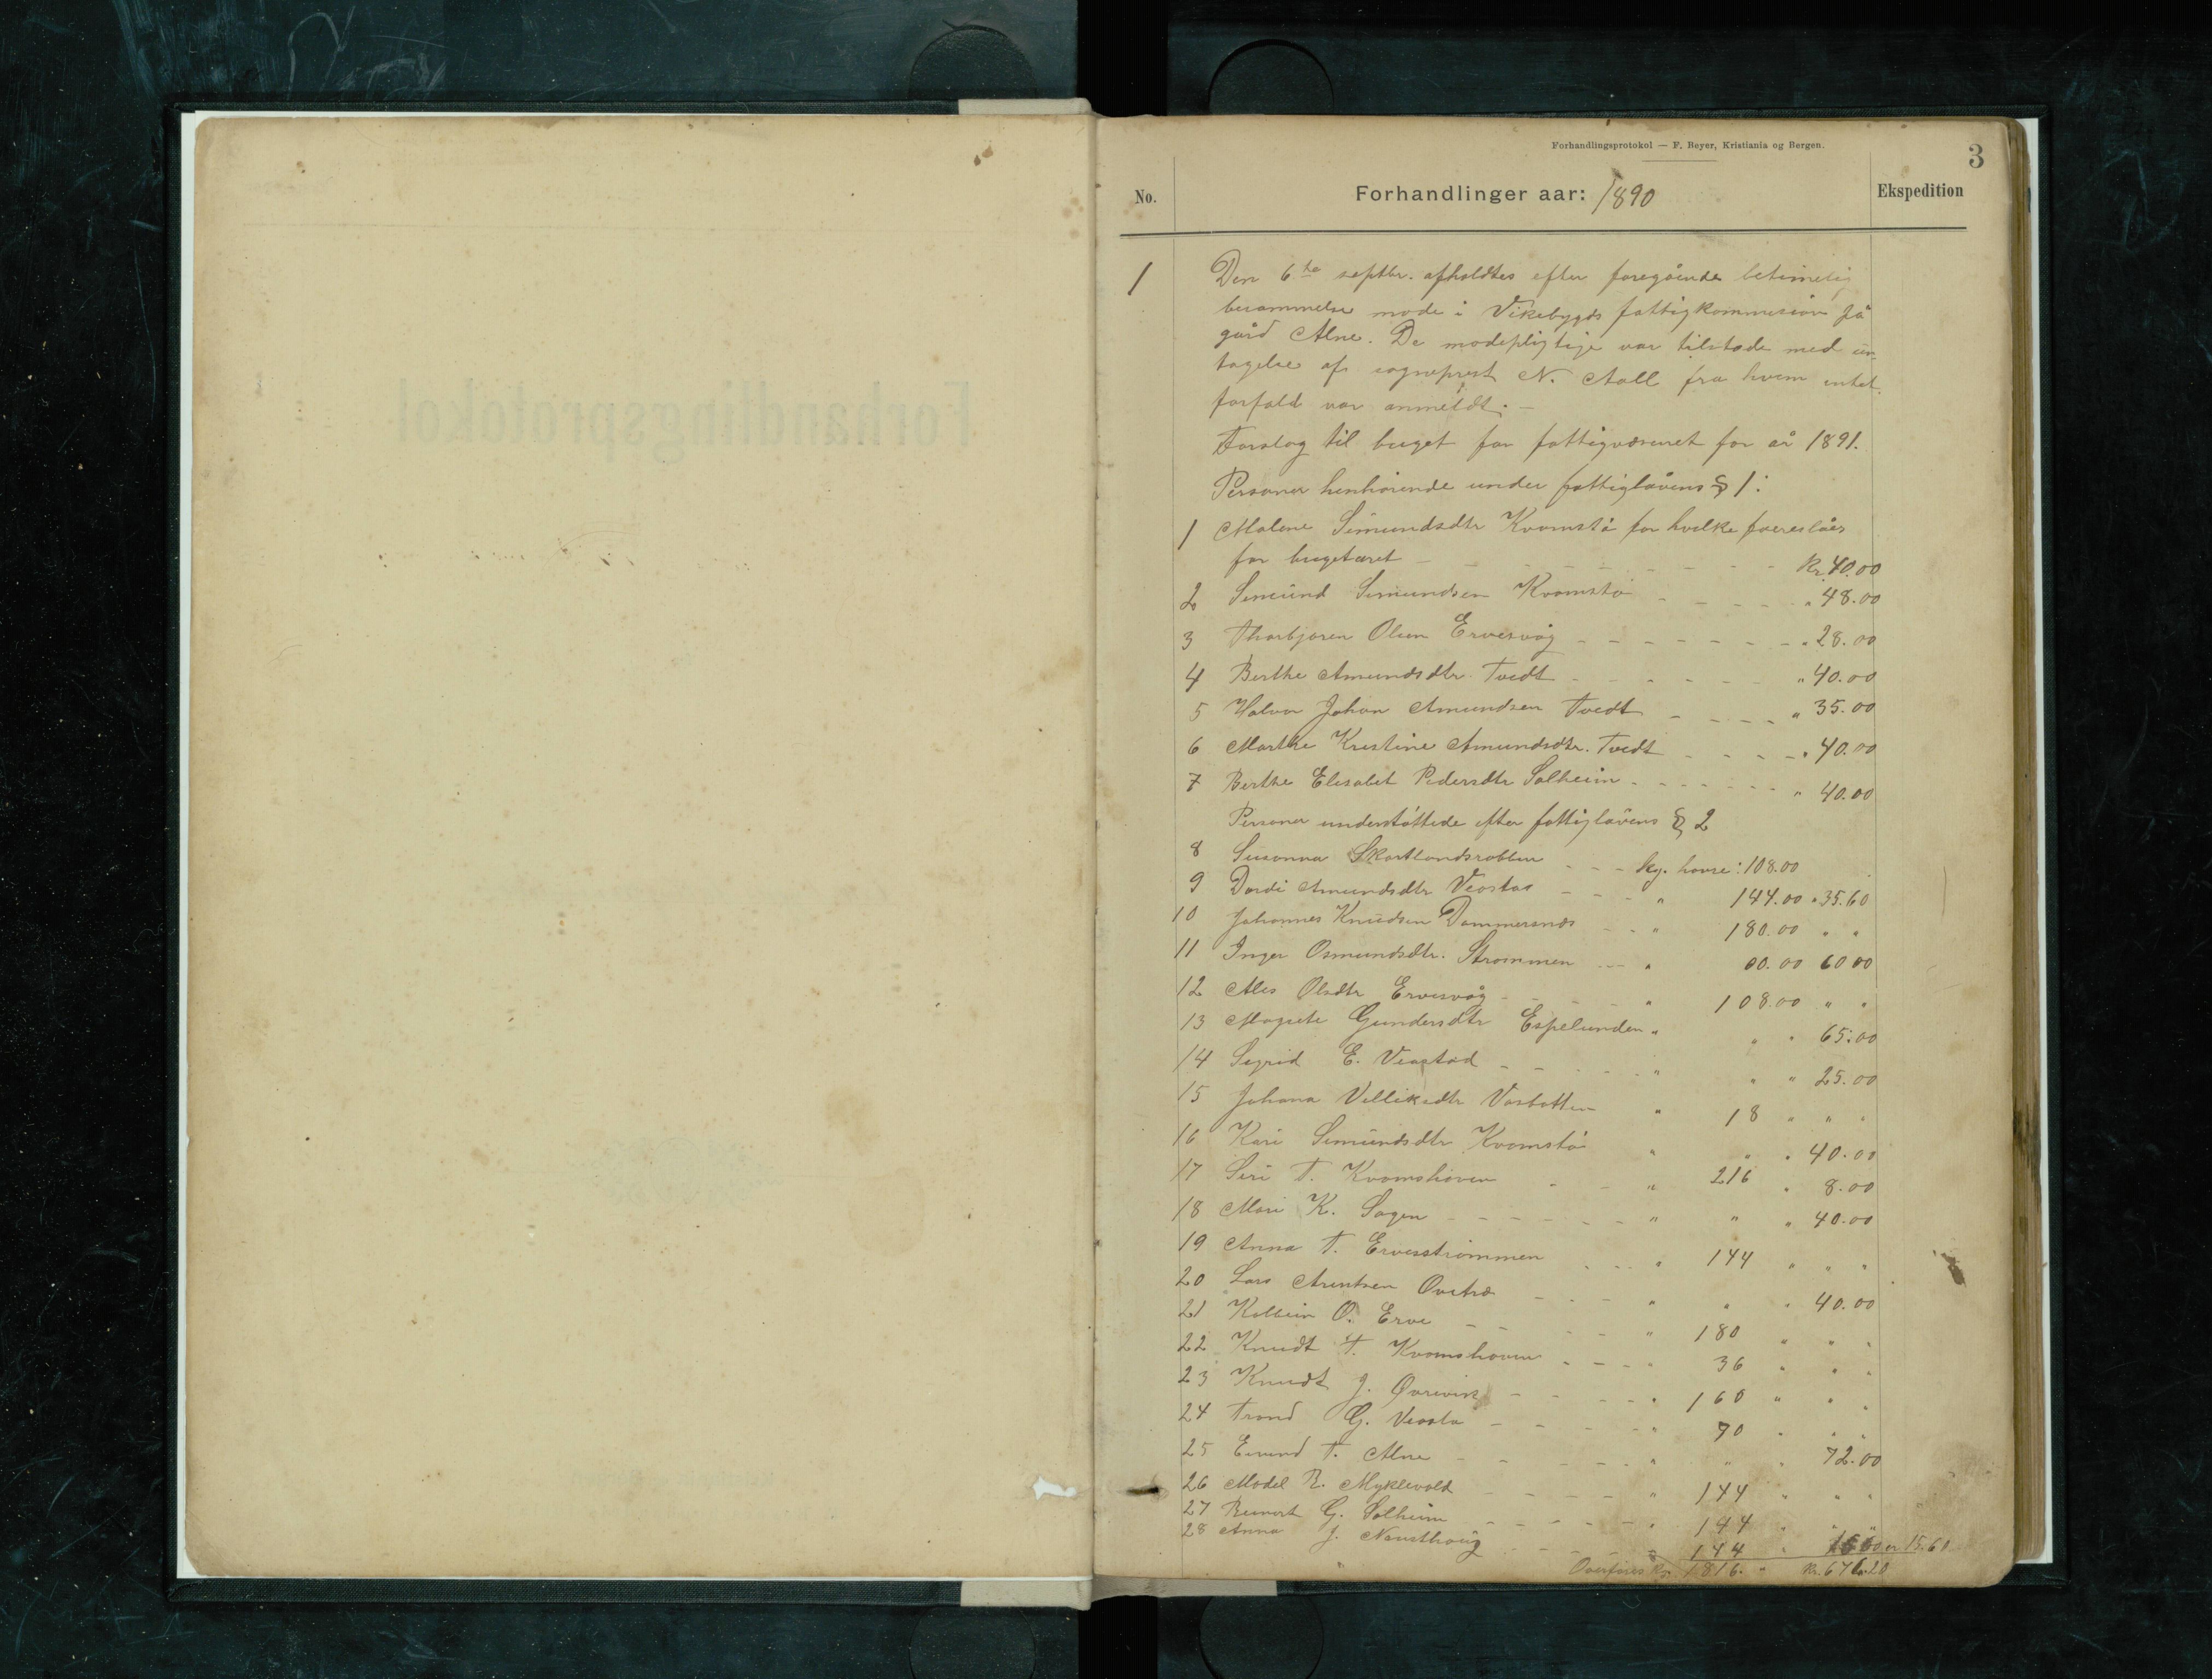 Forhandlingsprotokol — F. Beyer, Kristiania og Bergen.
3
No. Forhandlinger aar: 1890 Ekspedition
1 Den 6te septbr. afholdtes efter foregående betimelig
berammelse møde i Vikebygds fattigkommission på
gård Alne. De mødepligtige var tilstæde med un-
tagelse af sogneprest N. Aall fra hvem intet
forfald var anmeldt. —
Forslag til buget for fattigvæsenet for år 1891.
Personer henhørende under fattiglåvens § 1:
1 Malene Simundsdtr Kvamstø for hvilke foreslåes
for bugetåret - - - Kr. 40.00
2 Simund Simundsen Kvamstø - - - " 48.00
3 Thorbjøren Olsen Ervesvåg - - - " 28.00
4 Berthe Amundsdtr. Tvedt - - - " 40.00
5 Halvor Johan Amundsen Tvedt - - - " 35.00
6 Marthe Kristine Amundsdtr. Tvedt - - - " 40.00
7 Berthe Elisabet Pedersdtr Solheim - - - " 40.00
Personer understøttede efter fattiglåvens § 2
8 Susanna Skartlandsrabben - - - kg. havre: 108.00
9 Dordi Amundsdtr Veastad - - - " 144.00 " 35.60
10 Johannes Knudsen Dommersnes - - " 180.00 " "
11 Inger Osmundsdtr. Strømmen - - " 00.00 60 00
12 Ales Olsdtr Ervesvåg - - - " 108.00 " "
13 Magrete Gundersdtr Espelunden " " " 65.00
14 Sigrid E. Veastad - - - " " " 25.00
15 Johana Villiksdtr " 18 " " "
16 Kari Simundsdtr Kvamstø " " " 40.00
17 Siri T. Kvamshaven - - " 216 " 8.00
18 Mari K. Hagen - - - " " " 40.00
19 Anna T. Ervesstrømmen - - - " 144 " " "
20 Lars Arentsen Øvetræ - - - " " " 40.00
21 Kolbein O. Erve - - - " 180 " " "
22 Knudt T. Kvamshaven - - - 36 " " "
23 Knudt J. Øvrevik - - - " 160 " " "
24 Trond G. Veasta - - - " 90 " " "
25 Eivind T. Alne - - - " " " 72.00
26 Madel R. Myklevold - - - " 144 " " "
27 G. Solheim - - - " 144 " " "
28 Anna J. Nausthoug - - - " 144 " 15.60
Overføres Kr. 1816. " Kr. 676.20